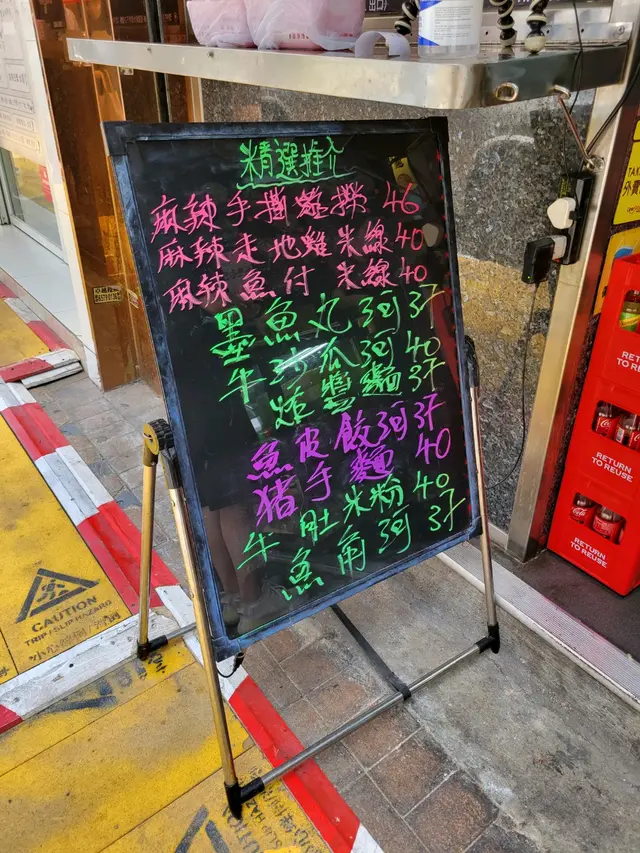 出口
精選推介
麻辣手撕雞撈 46
麻辣走地雞米線 40
麻辣魚付 米線 40
墨魚丸河 37
牛孖瓜河 40
炸醬麵 37
魚皮餃河 37
猪手麵 40
牛肚米粉 40
魚角河 37
CAUTION
TRIP/SLIP HAZARD
RETURN
TO REUSE
RETURN
TO REUSE
RETURN
TO REUSE